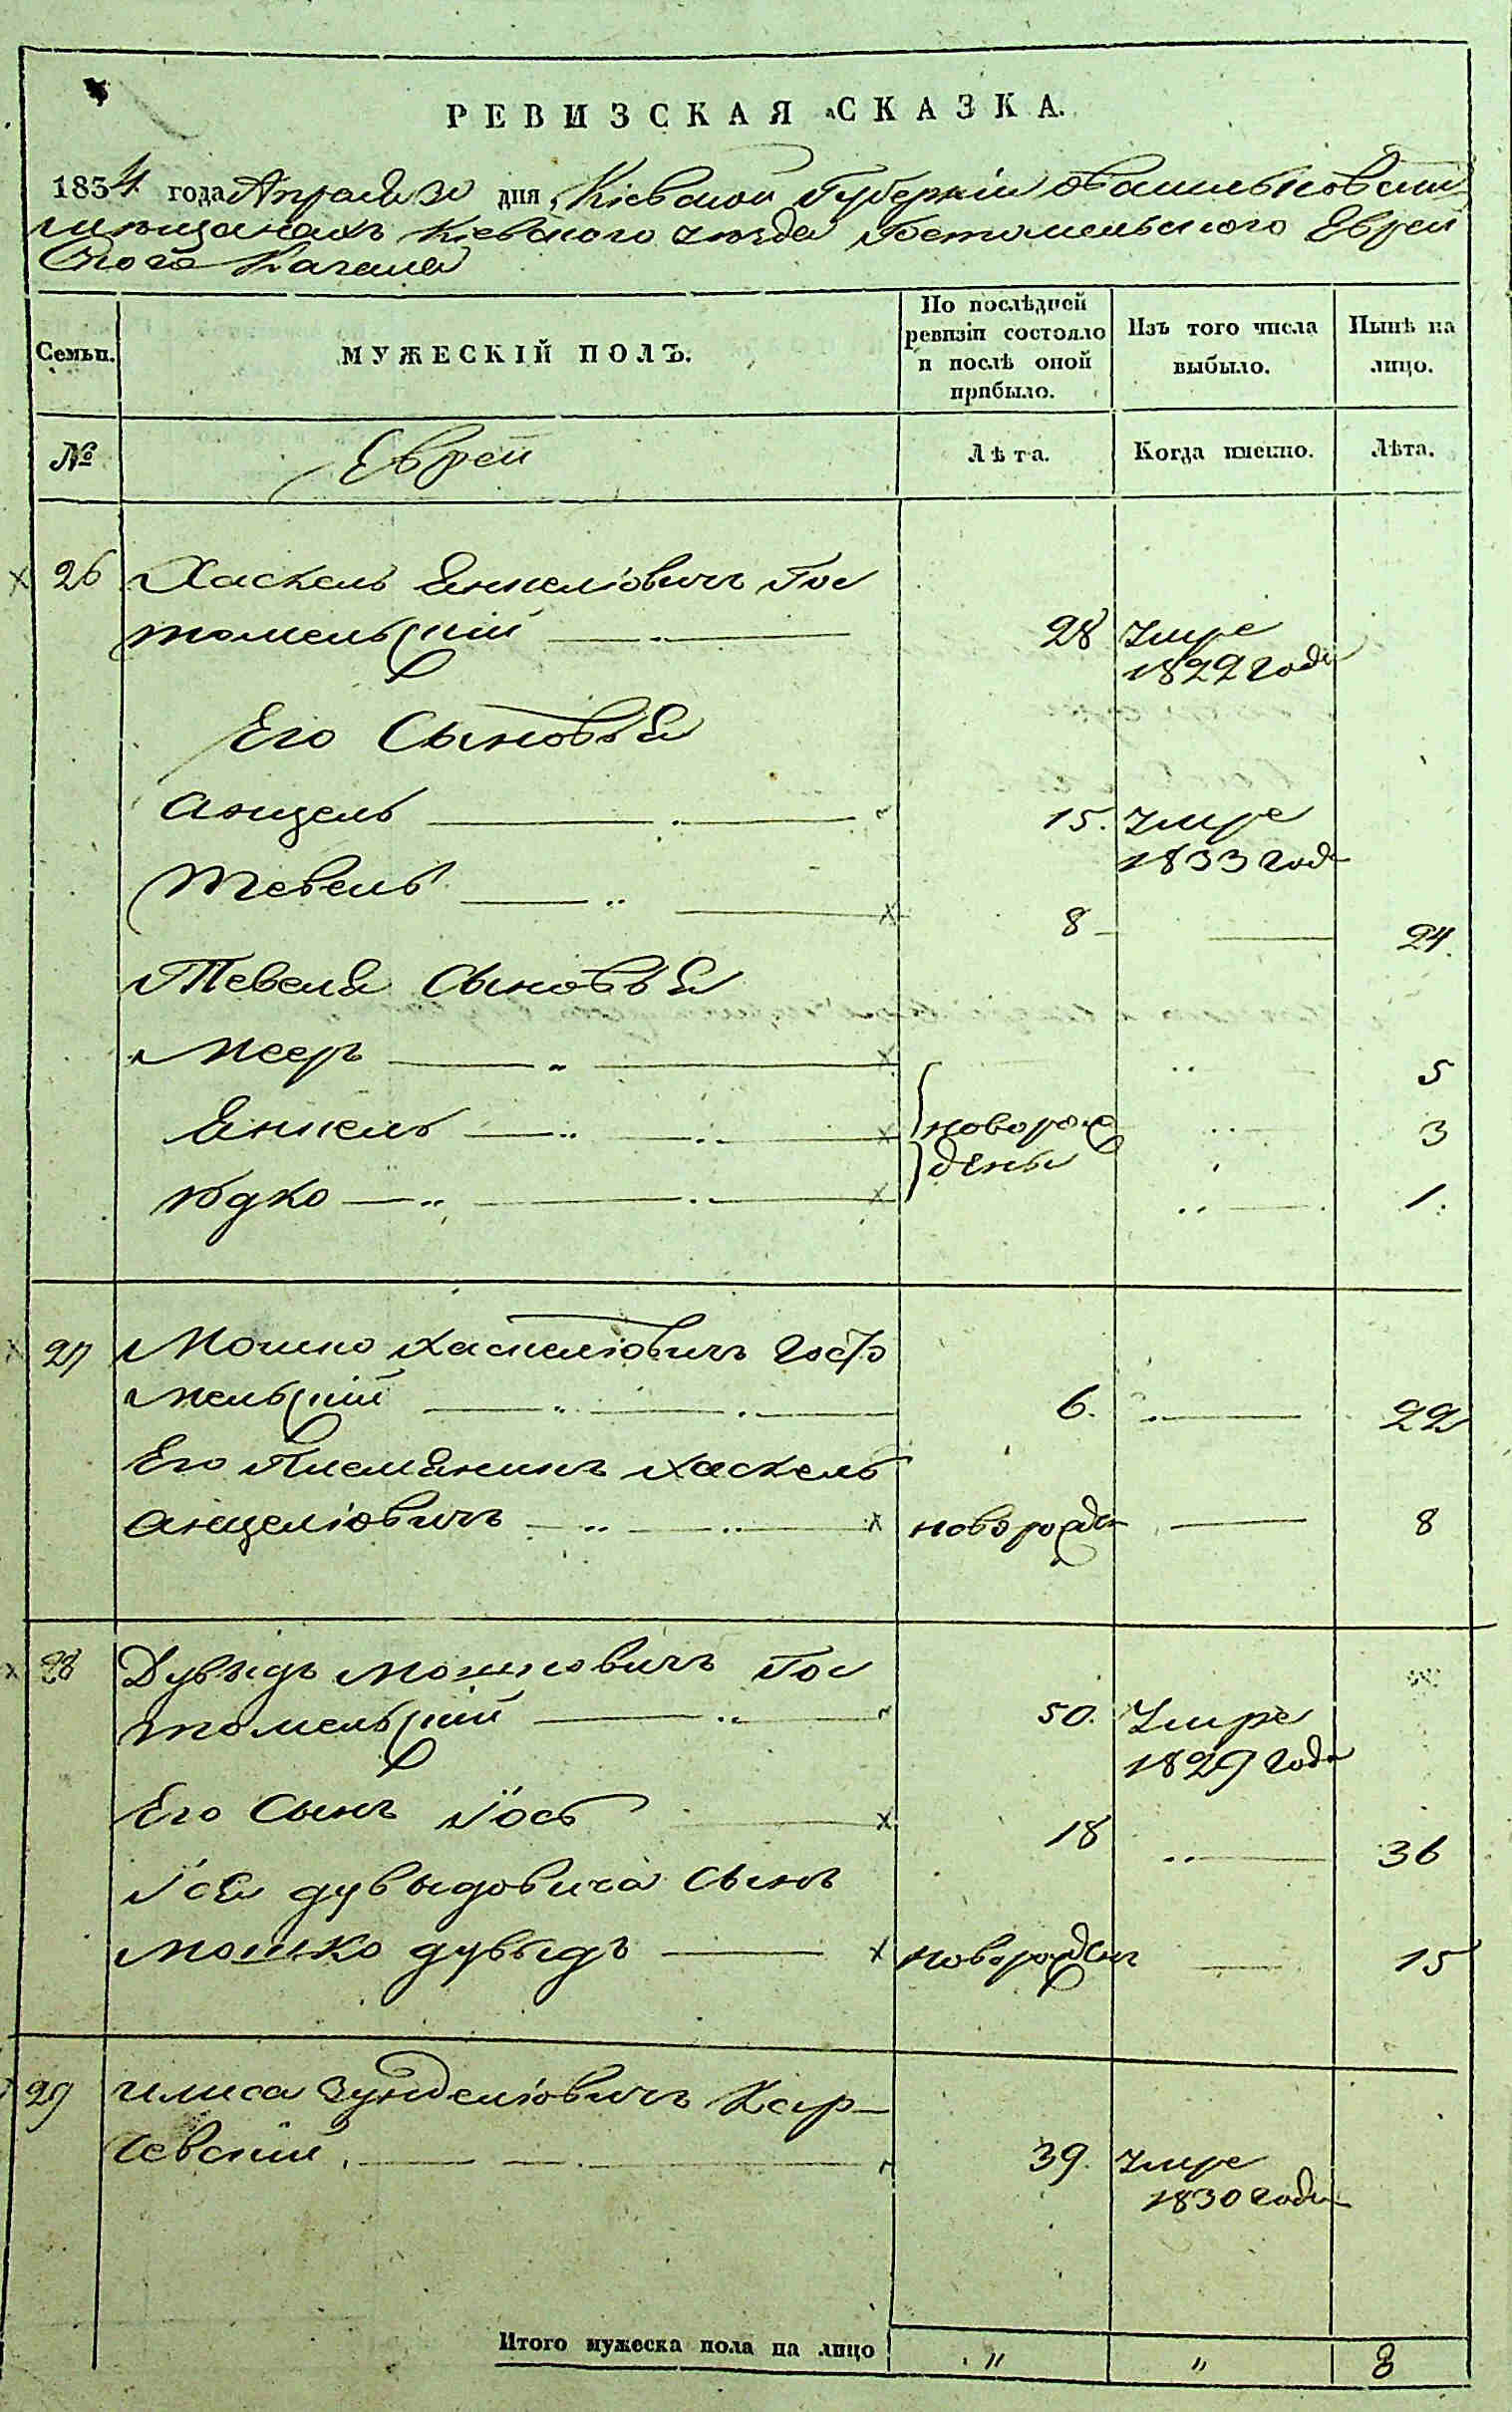 РЕВИЗСКАЯ СКАЗКА.
1834 года Апреля 30 дня, Кіевской Губерніи о Васильковских
мещанахъ Кіевского уезда Гостомельского Еврей
ского Кагала
Семьи.
МУЖЕСКІЙ ПОЛЪ.
По послѣдней ревизіи состояло и послѣ оной прибыло.
Изъ того числа выбыло.
Нынѣ на лицо.
№
Евреи
Лѣта.
Когда именно.
Лѣта.
26 Хаскель Янкеліовичъ Гос
томельскій 28 Умре
1822 года
Его Сыновья
Анцель 15. Умре
1833 года
Тевель 8 24.
Тевеля Сыновья
Меер 5
Янкель новорож 3
дены
Юдко 1.
27 Мошко Хаскеліовичъ Госто
мельскій 6. 22
Его Племянникъ Хаскель
Анцеліовичъ новорожден 8
28 Дувыдъ Мошковичъ Гос
томельскій 50. Умре
1829 года
Его Сынъ Іось 18 36
Іося Дувыдовича Сынъ
Мошко Дувыдъ новорожденъ 15
29 Зунделіовичъ Кар
чевскій 39. Умре
1830 года
Итого мужеска пола на лицо " " 8